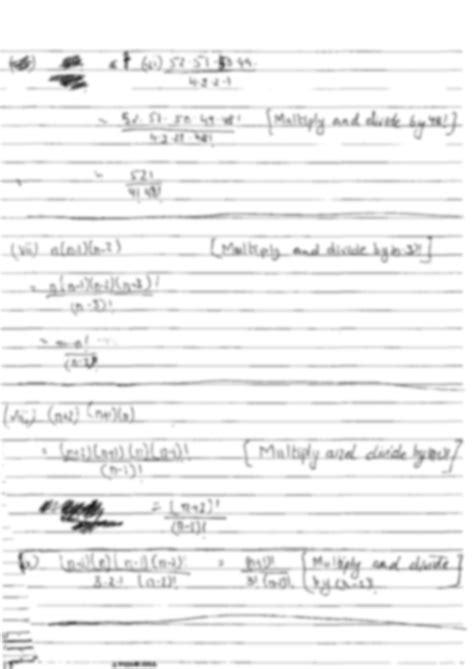 (vi) 52·51·50·49
4·3·2·1
52·51·50·49·48! [Multiply and divide by 48!]
4·3·2·1·48!
52!
4! 48!
(vii) n(n-1)(n-2) [Multiply and divide by n-3!]
= n(n-1)(n-2)(n-3)!
(n-3)!
= n!
(n-3)!
(n+2) (n+1)(n)
= (n+2)(n+1)(n)(n-1)! [Multiply and divide by
(n-1)!
= (n+2)!
(n-1)!
(n+1)(n)(n-1)(n-2)! = (n+1)! [Multiply and divide
3·2·1 (n-2)! 3! (n-2)! by (n-2)!]